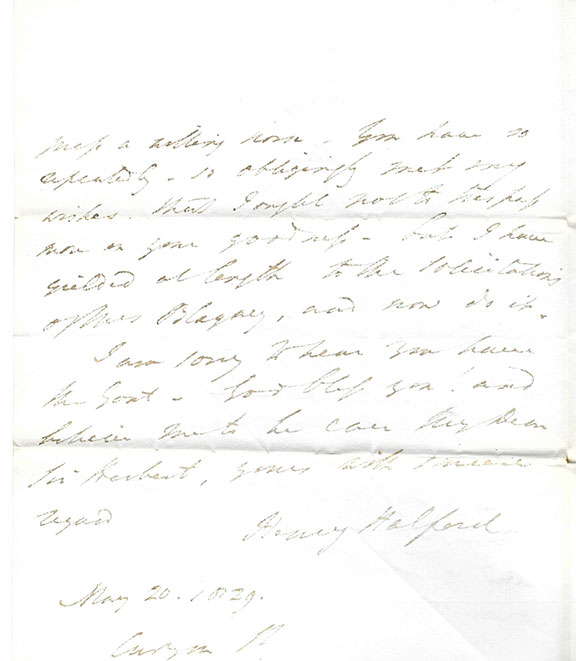 press a willing horse - You have so
repeatedly - so obligingly met my
wishes. that I ought not to trespass
more on your goodness - but I have
yielded at length to the solicitations
of Mrs Blagney, and now do it.
I am sorry to hear you have
the Gout - God bless you! and
believe me to be ever My Dear
Sir Herbert, yours with sincere
regard
Henry Halford
May 20. 1829.
Curzon St